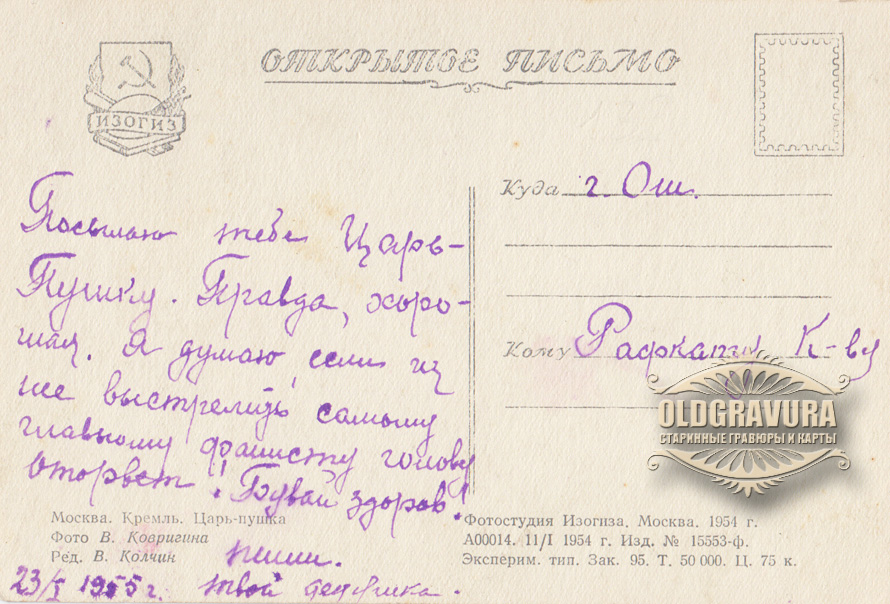 ОТКРЫТОЕ ПИСЬМО
ИЗОГИЗ
Посылаю тебе Царь-
Пушку. Правда, хоро-
шая. Я думаю, если из
нее выстрелить самому
главному фашисту голову
оторвет! Бувай здоров!
пиши.
23/I 1955 г. твой дедушка.
Куда г. Ош.
Кому К-ву
OLDGRAVURA
СТАРИННЫЕ ГРАВЮРЫ И КАРТЫ
Москва. Кремль. Царь-пушка
Фото В. Ковригина
Ред. В. Колчин
Фотостудия Изогиза. Москва. 1954 г.
А00014. 11/I 1954 г. Изд. № 15553-ф.
Эксперим. тип. Зак. 95. Т. 50 000. Ц. 75 к.